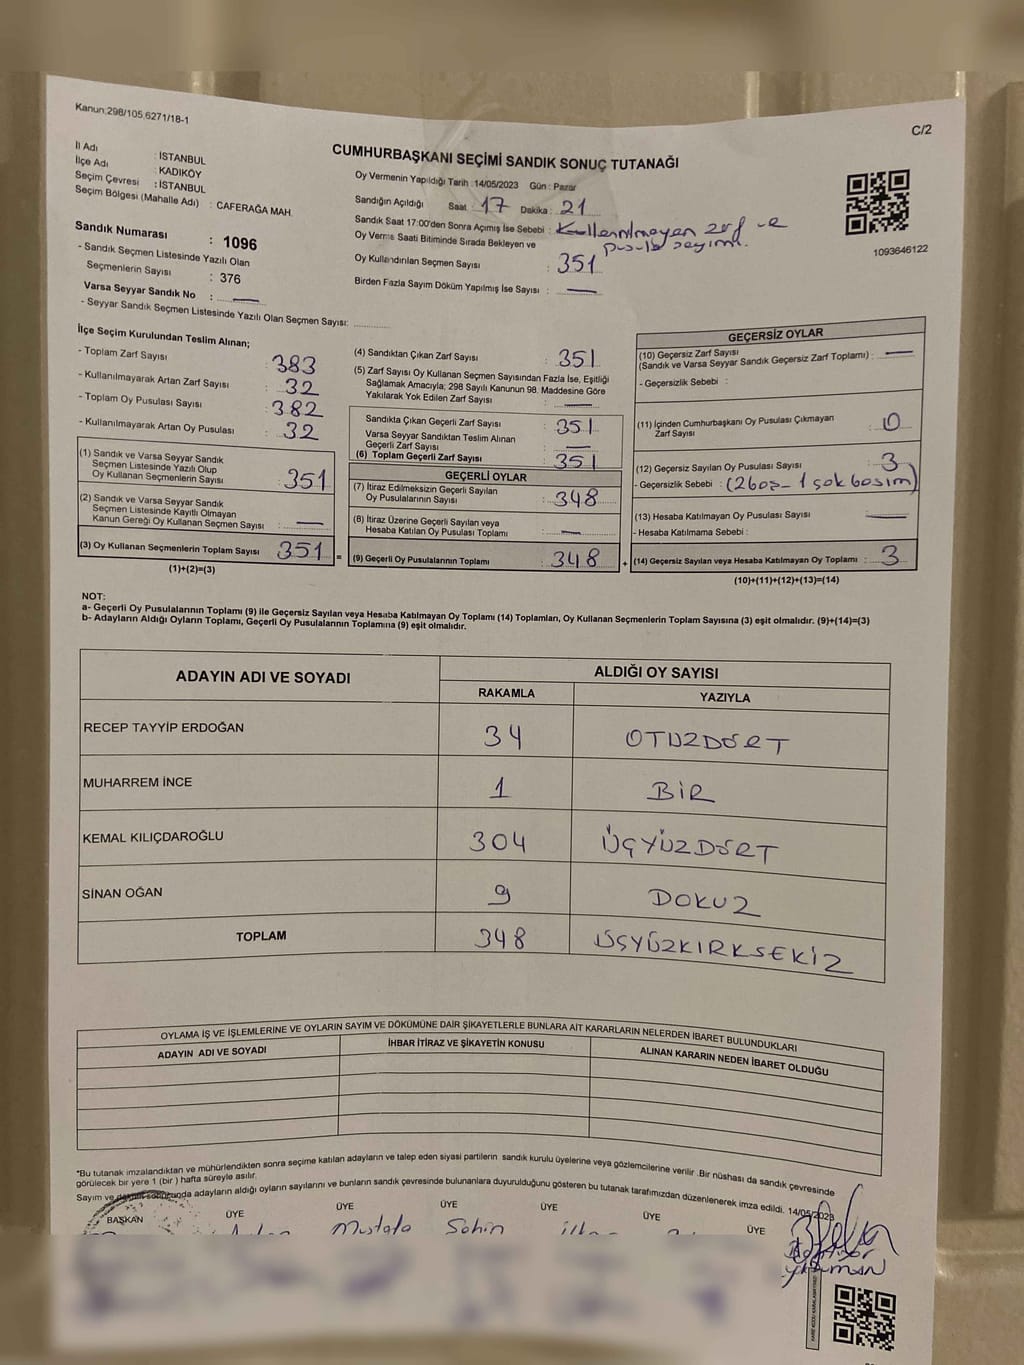 Kanun:298/105,6271/18-1
C/2
CUMHURBAŞKANI SEÇİMİ SANDIK SONUÇ TUTANAĞI
İl Adı : İSTANBUL
İlçe Adı : KADIKÖY
Seçim Çevresi : İSTANBUL
Seçim Bölgesi (Mahalle Adı) : CAFERAĞA MAH.
Sandık Numarası : 1096
- Sandık Seçmen Listesinde Yazılı Olan
Seçmenlerin Sayısı : 376
Varsa Seyyar Sandık No : —
- Seyyar Sandık Seçmen Listesinde Yazılı Olan Seçmen Sayısı:
Oy Vermenin Yapıldığı Tarih :14/05/2023 Gün : Pazar
Sandığın Açıldığı Saat : 17 Dakika : 21
Sandık Saat 17:00'den Sonra Açımış İse Sebebi : Kullanılmayan zarf ve
pusula sayımı.
Oy Verme Saati Bitiminde Sırada Bekleyen ve
Oy Kullandırılan Seçmen Sayısı : 351
Birden Fazla Sayım Döküm Yapılmış İse Sayısı : —
1093646122
İlçe Seçim Kurulundan Teslim Alınan;
- Toplam Zarf Sayısı : 383
- Kullanılmayarak Artan Zarf Sayısı : 32
- Toplam Oy Pusulası Sayısı : 382
- Kullanılmayarak Artan Oy Pusulası : 32
(1) Sandık ve Varsa Seyyar Sandık
Seçmen Listesinde Yazılı Olup
Oy Kullanan Seçmenlerin Sayısı : 351
(2) Sandık ve Varsa Seyyar Sandık
Seçmen Listesinde Kayıtlı Olmayan
Kanun Gereği Oy Kullanan Seçmen Sayısı : —
(3) Oy Kullanan Seçmenlerin Toplam Sayısı : 351 =
(1)+(2)=(3)
(4) Sandıktan Çıkan Zarf Sayısı : 351
(5) Zarf Sayısı Oy Kullanan Seçmen Sayısından Fazla İse, Eşitliği
Sağlamak Amacıyla; 298 Sayılı Kanunun 98. Maddesine Göre
Yakılarak Yok Edilen Zarf Sayısı : —
Sandıkta Çıkan Geçerli Zarf Sayısı : 351
Varsa Seyyar Sandıktan Teslim Alınan
Geçerli Zarf Sayısı : —
(6) Toplam Geçerli Zarf Sayısı : 351
GEÇERLİ OYLAR
(7) İtiraz Edilmeksizin Geçerli Sayılan
Oy Pusulalarının Sayısı : 348
(8) İtiraz Üzerine Geçerli Sayılan veya
Hesaba Katılan Oy Pusulası Toplamı : —
(9) Geçerli Oy Pusulalarının Toplamı : 348 +
GEÇERSİZ OYLAR
(10) Geçersiz Zarf Sayısı
(Sandık ve Varsa Seyyar Sandık Geçersiz Zarf Toplamı) : —
- Geçersizlik Sebebi :
(11) İçinden Cumhurbaşkanı Oy Pusulası Çıkmayan
Zarf Sayısı : 0
(12) Geçersiz Sayılan Oy Pusulası Sayısı : 3
- Geçersizlik Sebebi : (2 boş - 1 çok basım)
(13) Hesaba Katılmayan Oy Pusulası Sayısı : —
- Hesaba Katılmama Sebebi :
(14) Geçersiz Sayılan veya Hesaba Katılmayan Oy Toplamı : 3
(10)+(11)+(12)+(13)=(14)
NOT:
a- Geçerli Oy Pusulalarının Toplamı (9) ile Geçersiz Sayılan veya Hesaba Katılmayan Oy Toplamı (14) Toplamları, Oy Kullanan Seçmenlerin Toplam Sayısına (3) eşit olmalıdır. (9)+(14)=(3)
b- Adayların Aldığı Oyların Toplamı, Geçerli Oy Pusulalarının Toplamına (9) eşit olmalıdır.
ADAYIN ADI VE SOYADI ALDIĞI OY SAYISI
RAKAMLA YAZIYLA
RECEP TAYYİP ERDOĞAN 34 OTUZDÖRT
MUHARREM İNCE 1 BİR
KEMAL KILIÇDAROĞLU 304 ÜÇYÜZDÖRT
SİNAN OĞAN 9 DOKUZ
TOPLAM 348 ÜÇYÜZKIRKSEKİZ
OYLAMA İŞ VE İŞLEMLERİNE VE OYLARIN SAYIM VE DÖKÜMÜNE DAİR ŞİKAYETLERLE BUNLARA AİT KARARLARIN NELERDEN İBARET BULUNDUKLARI
ADAYIN ADI VE SOYADI İHBAR İTİRAZ VE ŞİKAYETİN KONUSU ALINAN KARARIN NEDEN İBARET OLDUĞU
*Bu tutanak imzalandıktan ve mühürlendikten sonra seçime katılan adayların ve talep eden siyasi partilerin sandık kurulu üyelerine veya gözlemcilerine verilir .Bir nüshası da sandık çevresinde
görülecek bir yere 1 (bir ) hafta süreyle asılır.
Sayım ve döküm sonucunda adayların aldığı oyların sayılarını ve bunların sandık çevresinde bulunanlara duyurulduğunu gösteren bu tutanak tarafımızdan düzenlenerek imza edildi. 14/05/2023
BAŞKAN ÜYE ÜYE ÜYE ÜYE ÜYE ÜYE
Mustafa Şahin